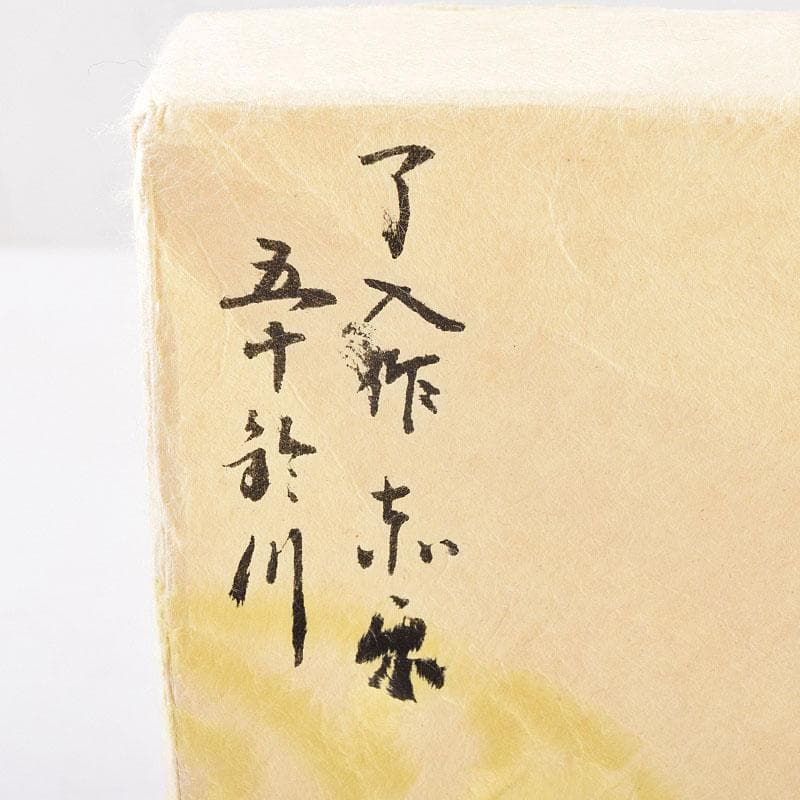 了入作 赤楽
五十鈴川